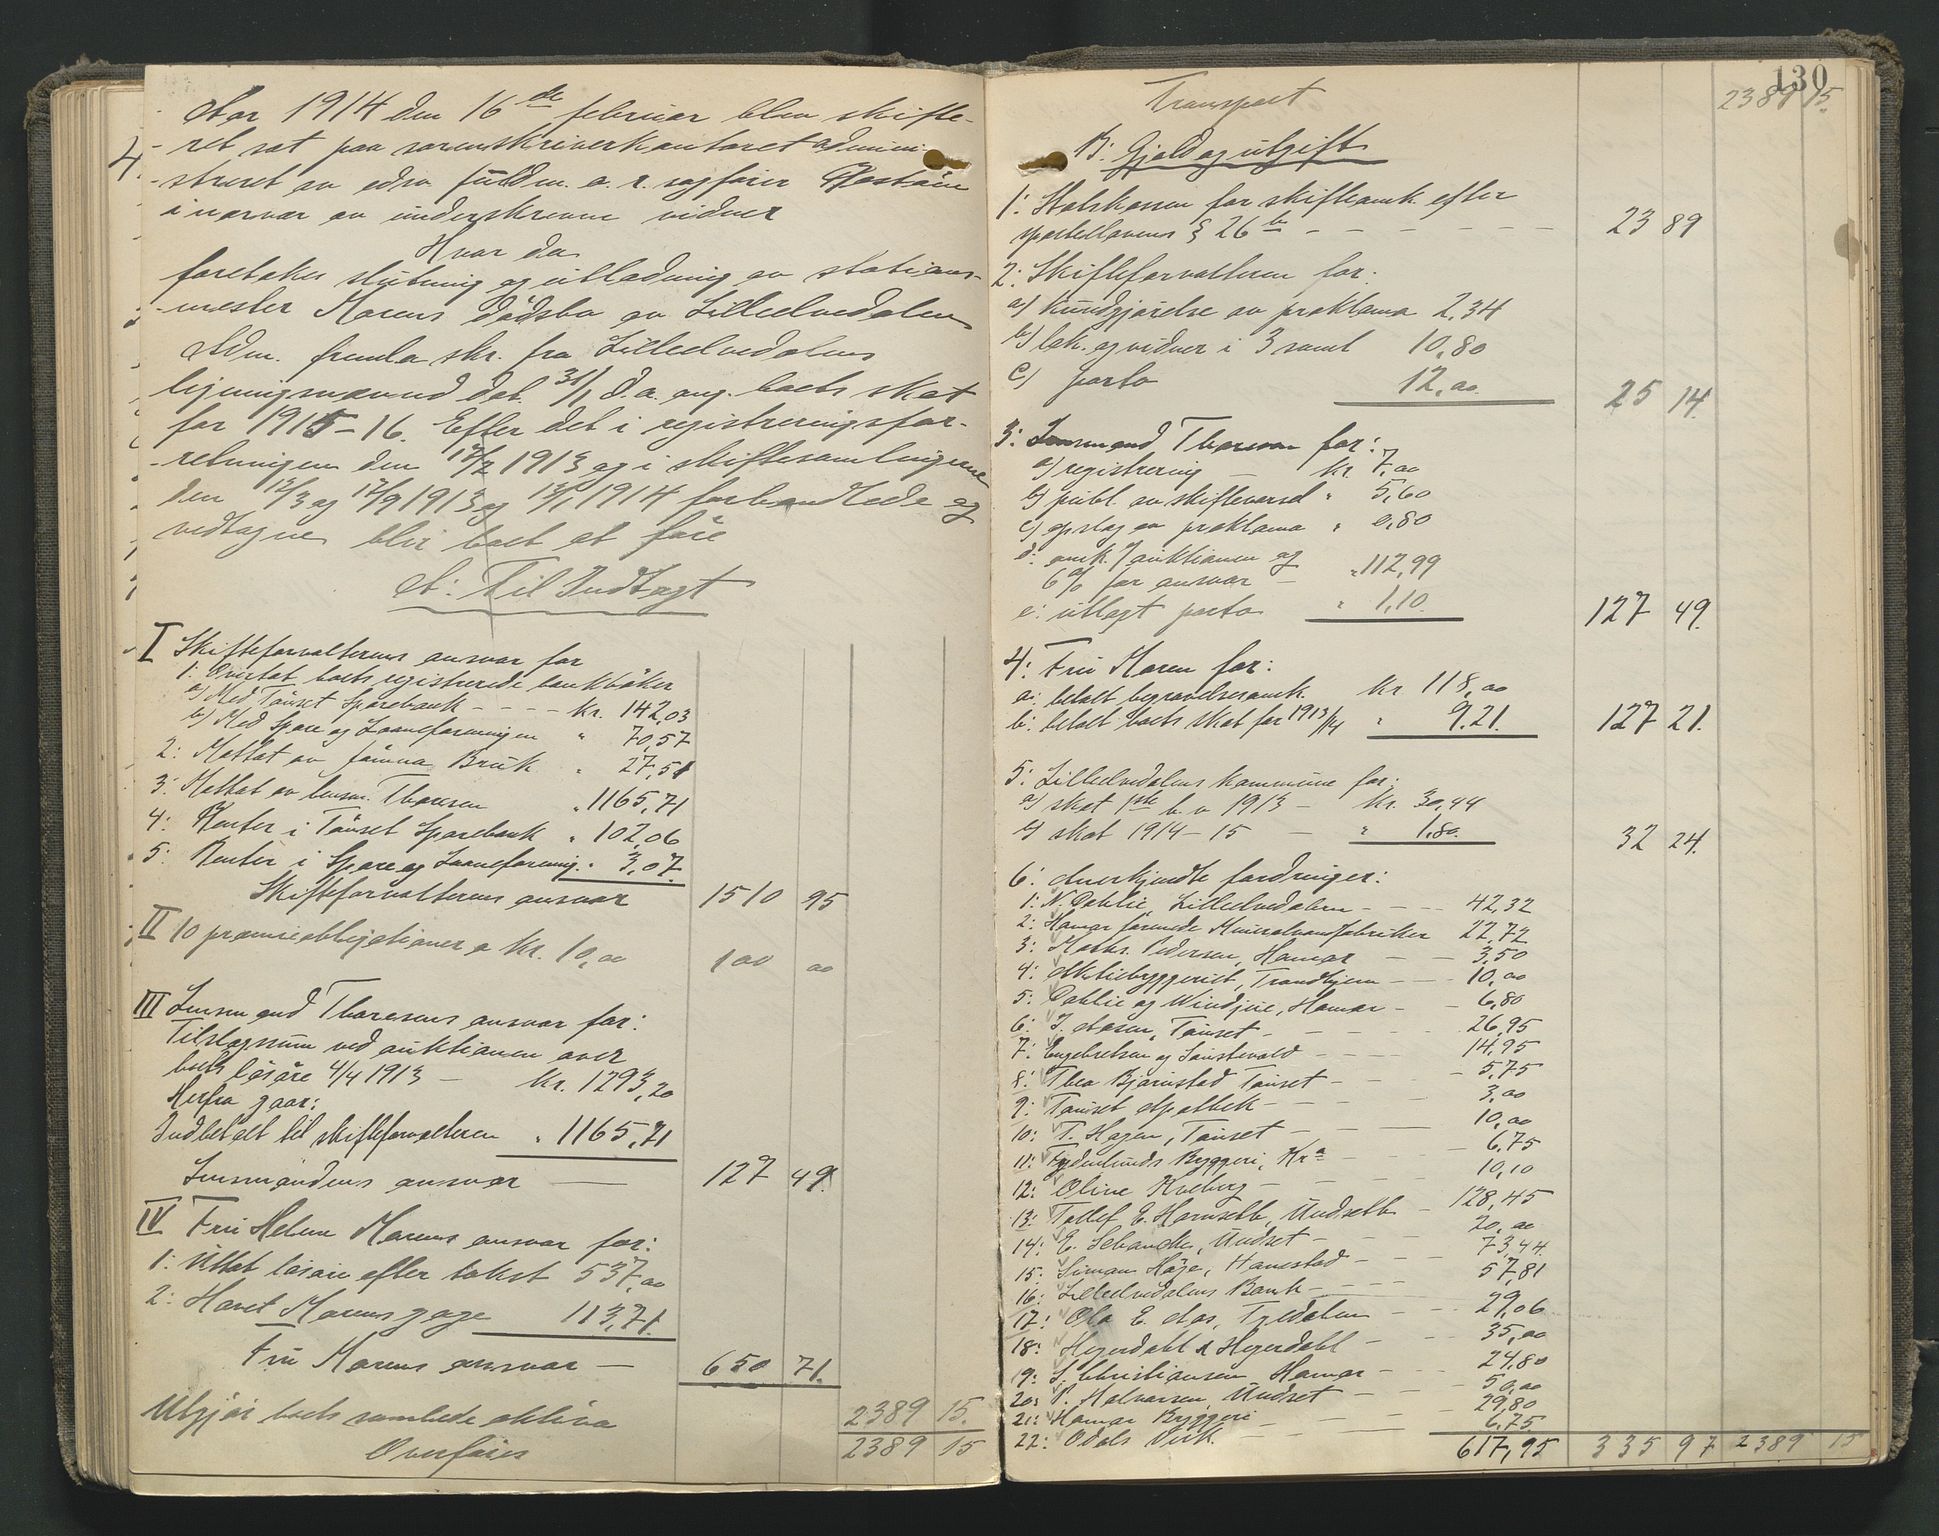 Aar 1914 den 16de februar blev skifte-
ret sat paa sorenskriverkontoret admini-
streret av edsv. fuldm. o. r. sagfører
i nærvær av underskrevne vidner
Hvor da
foretokes slutning og utlodning av stations-
mester Morens dødsbo av Lilleelvedalen
Adm. fremla skr. fra Lilleelvedalens
ligningsnævnd dat. 31/1 d.a. ang. boets skat
for 1915-16. Efter det i registreringsfor-
retningen den 17/2 1913 og i skiftesamlingerne
den 12/3 og 17/9 1913 og 13/1 1914 forhandlede og
vedtagne blir boet atføre
A: Til Indtægt
I Skifteforvalterens ansvar for
1: Overtat boets registrerede bankbøker
a) Med Tønset Sparebank - - - - kr. 142,03
b) Med Spare og Laaneforeningen " 70,57
2: Mottat av Fænna Bruk " 27,51
3: Mottat av lensm. Thoresen " 1165,71
4: Renter i Tønset Sparebank " 102,06
5: Renter i Spare og Laaneforening " 3,07.
Skifteforvalterens ansvar 1510 95
II 10 præmieobligationer a kr. 10,00 100 00
III Lensmand Thoresens ansvar for:
Tilslagssum ved auktionen over
boets løsøre 4/4 1913 - kr. 1293,20
Herfra gaar:
Indbetalt til skifteforvalteren " 1165,71
Lensmandens ansvar - 127 49.
IV Fru Helene Morens ansvar for:
1: Uttat løsøre efter takst 537,00
2: Hævet Morens gage 113,71.
Fru Morens ansvar - 650 71.
Utgjør boets samlede aktiva 2389 15.
Overføres 2389 15
130
Transport 2389 15.
B: Gjeld og utgift
1: Statskassen for skifteavk. efter
sportellovens § 26 b - - - - - - 23 89
2: Skifteforvalteren for:
a) kundgjørelse av proklama 2,34
b) lok. og vidner i 3 saml 10,80
c) porto 12,00. 25 14.
3: Lensmand Thoresen for:
a) registrering - kr. 7,00
b) publ. av skiftevarsel " 5,60
c) opslag av proklama " 0,80
d: omk. / auktionen og
6 % for ansvar - " 112,99
e: utlagt porto " 1,10. 127 49.
4: Fru Moren for:
a: betalt begravelsesomk. kr. 118,00
b: betalt boets skat for 1913/14 " 9.21. 127 21.
5: Lilleelvedalens kommune for:
a) skat 1ste h.v 1913 - kr. 30,44
b) skat 1914-15 - " 1,80. 32 24.
6: Anerkjendte fordringer:
1: N. Dahlie, Lilleelvedalen - - - - 42,32
2: Hamar forenede Mineralvandfabriker 22,72
3: Maths. Pedersen, Hamar - - 3,50
4: Aktiebryggeriet, Trondhjem - - - 10,00
5: Dahlie og Windjue, Hamar - - 6,80
6: J. Aasen, Tønset - - - - 26,95
7: Engebretsen og Sønstevold - - - - 14,95
8: Thea Bjørnstad Tønset - - - 5,75
9: Tønset Apothek - - - - 3,00
10: T. Hagen, Tønset - - - 10,00
11: Frydenlunds Bryggeri, Kra - - - 6,75
12: Oline Kveberg - - - - 10,10
13: Tollef E. Harsetb, Undsetb - 128,45
14: E. Schancke, Undset - - - 20,00
15: Simon Høye, Hanestad - - 73,44.
16: Lilleelvedalens Bank - - - - 57,81
17: Ola E. Aas, Tyldalen - - 29,06
18: Heyerdahl & Heyerdahl - - 35,00
19: S. Christiansen Hamar - - 24,80
20: P. Halvorsen, Undset - - - 50,00
21: Hamar Bryggeri - - - 29,80
22: Odals Verk. - - - 6,75.
617,95 335 97 2389 15